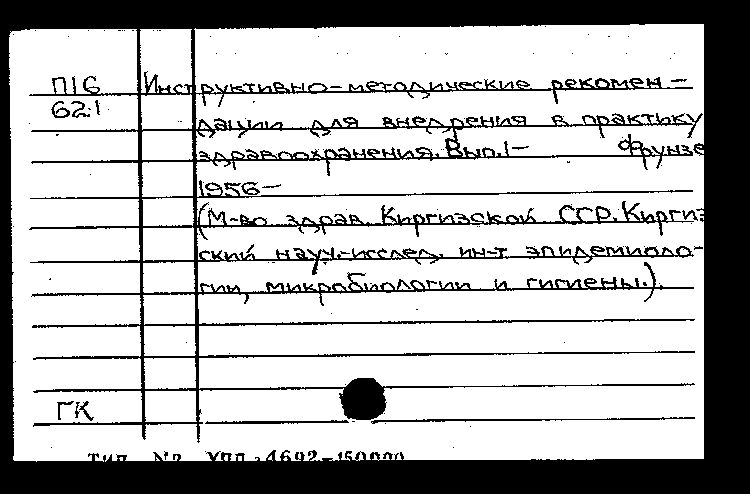 П16 Инструктивно-методические рекомен-
621
дации для внедрения в практику
здравоохранения. Вып.1- Фрунзе
1956-
(М-во здрав. Киргизской ССР. Киргиз
ский науч.-исслед. ин-т эпидемиоло-
гии, микробиологии и гигиены.).
ГК